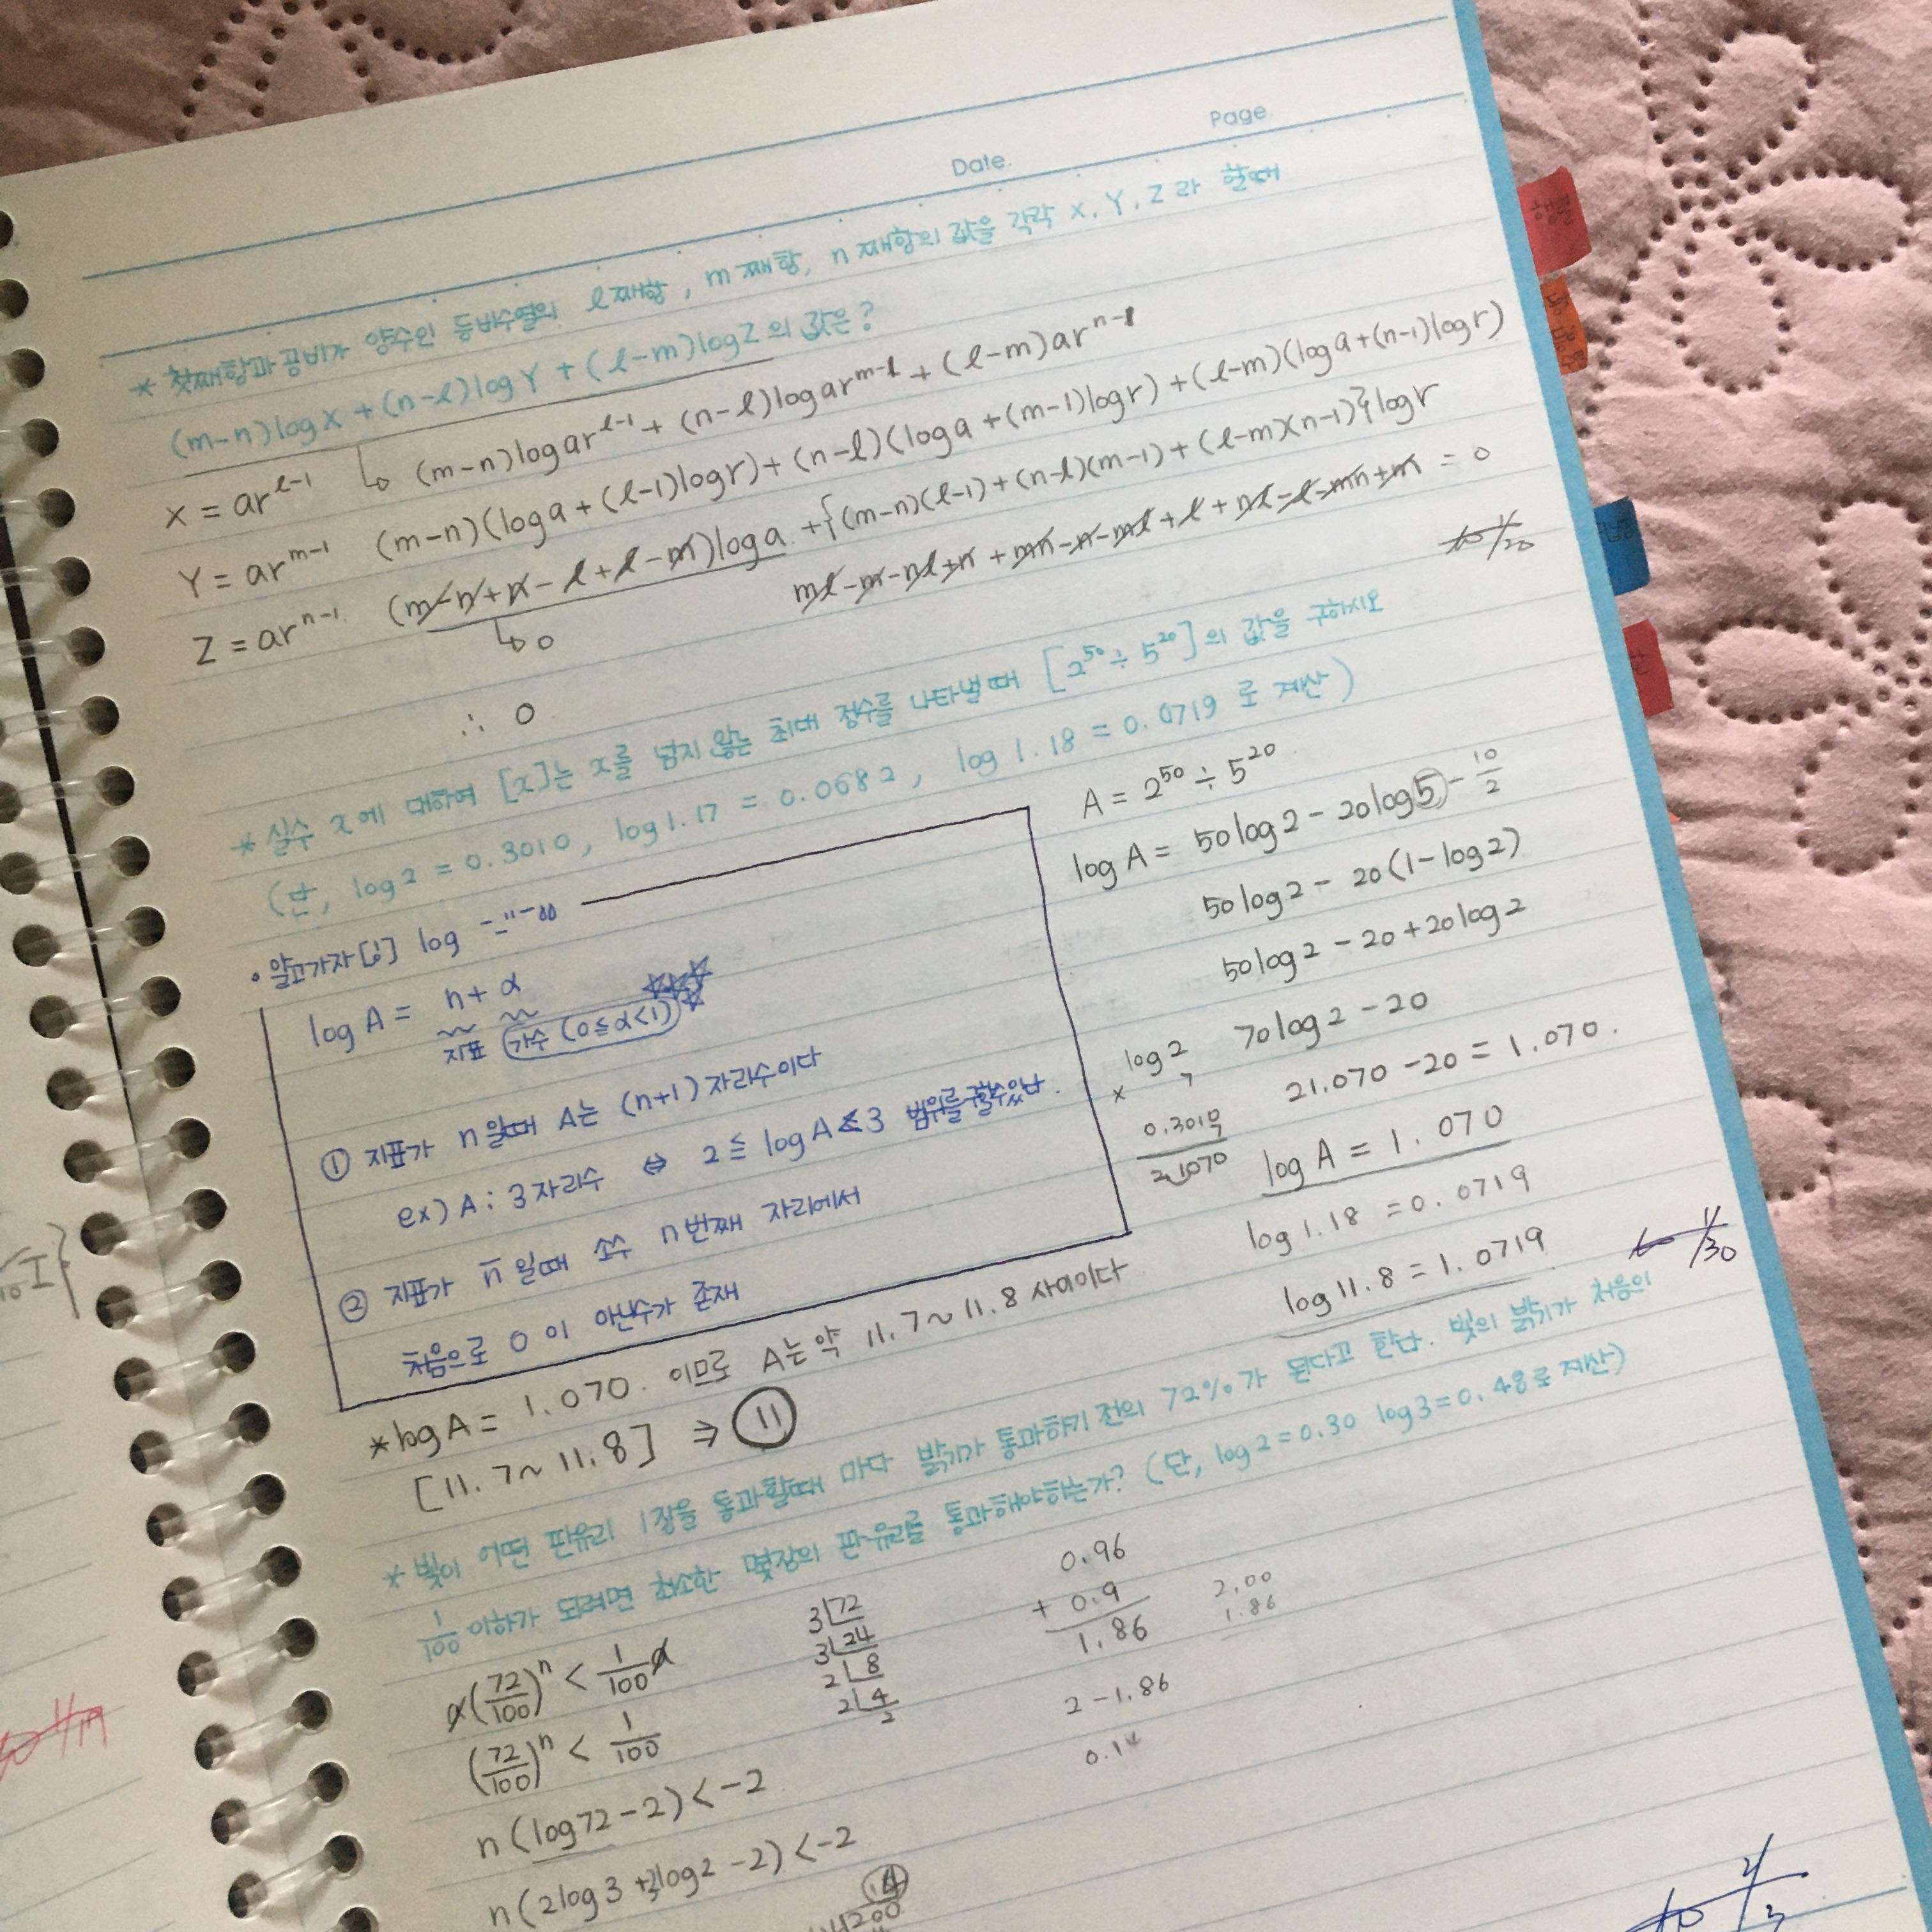 Page
Date.
* 첫째항과 공비가 양수인 등비수열의 ℓ째항, m째항, n째항의 값을 각각 X, Y, Z라 할때
(m-n)logX + (n-ℓ)logY + (ℓ-m)logZ의 값은?
X = ar^{ℓ-1} ↳ (m-n)logar^{ℓ-1} + (n-ℓ)logar^{m-1} + (ℓ-m)ar^{n-1}
Y = ar^{m-1} (m-n)(loga + (ℓ-1)logr) + (n-ℓ)(loga + (m-1)logr) + (ℓ-m)(loga + (n-1)logr)
Z = ar^{n-1} (m-n+n-ℓ+ℓ-m)loga + {(m-n)(ℓ-1) + (n-ℓ)(m-1) + (ℓ-m)(n-1)}logr
↳ 0 mℓ-m-nℓ+n+mn-n-mℓ+ℓ+nℓ-ℓ-mn+m = 0
∴ 0
1/20
* 실수 x에 대하여 [x]는 x를 넘지 않는 최대 정수를 나타낼때 [2^{50} ÷ 5^{20}]의 값을 구하시오
(단, log2 = 0.3010, log1.17 = 0.0682, log1.18 = 0.0719로 계산)
• 알고가자[!] log
log A = n + α
지표 가수 (0≦α<1)
① 지표가 n일때 A는 (n+1)자리수이다
ex) A : 3자리수 ⇔ 2 ≦ log A < 3 범위를 구할수있다.
② 지표가 n̄일때 소수 n번째 자리에서
처음으로 0이 아닌수가 존재
A = 2^{50} ÷ 5^{20}
log A = 50log2 - 20log5 - 10/2
50log2 - 20(1-log2)
50log2 - 20 + 20log2
70log2 - 20
log2
× 7
0.3010
7
2.1070
21.070 - 20 = 1.070.
log A = 1.070
log 1.18 = 0.0719
log 11.8 = 1.0719
1/30
* log A = 1.070. 이므로 A는 약 11.7~11.8 사이이다
[11.7~11.8] ⇒ 11
* 빛이 어떤 판유리 1장을 통과할때 마다 밝기가 통과하기 전의 72%가 된다고 한다. 빛의 밝기가 처음의
1/100 이하가 되려면 최소한 몇장의 판유리를 통과해야하는가? (단, log2=0.30 log3=0.48로 계산)
a(72/100)^n < 1/100 a
(72/100)^n < 1/100
n(log72-2) < -2
n(2log3+3log2-2) < -2
3 72
3 24
2 8
2 4
2
0.96
+ 0.9
1.86
2.00
1.86
2 - 1.86
0.14
14
200